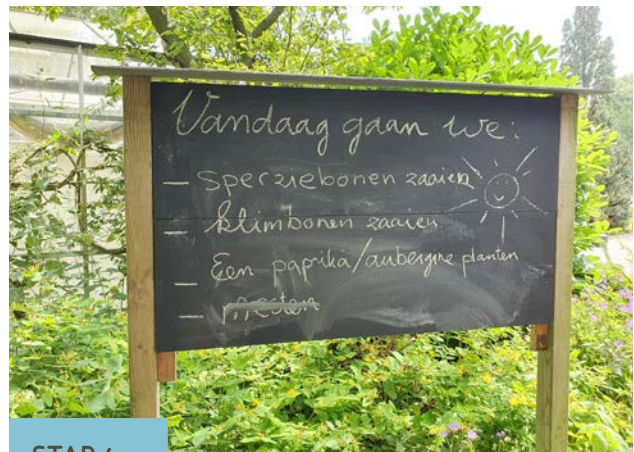 Vandaag gaan we:
- sperziebonen zaaien
- klimbonen zaaien
- Een paprika/aubergine planten
- mesten